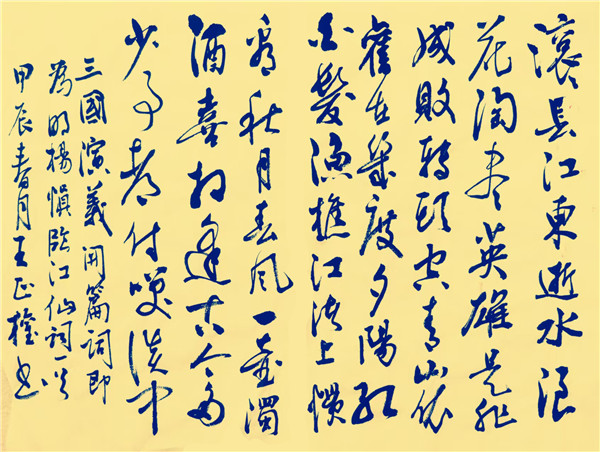 滚長江東逝水浪
花淘尽英雄是非
成敗轉頭空青山依
舊在幾度夕陽红
白髮漁樵江渚上慣
看秋月春風一壺濁
酒喜相逢古今多
少事都付笑談中
三國演義開篇詞即
為明楊慎臨江仙詞一首
甲辰春月王正權书